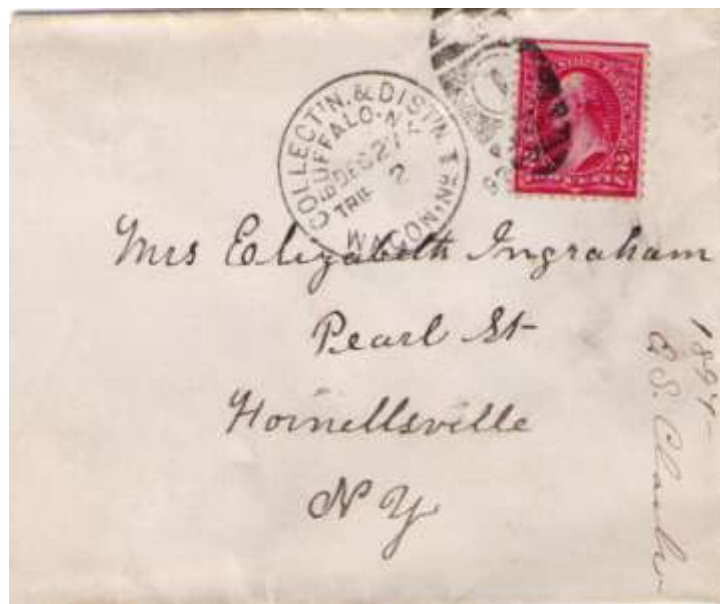 COLLECT'N. & DIST'N
BUFFALO. N.Y.
DEC 21
TRIP 2
WAGON. No. 1
2 2
Mrs Elizabeth Ingraham
Pearl St
Hornellsville
N Y
189
S.